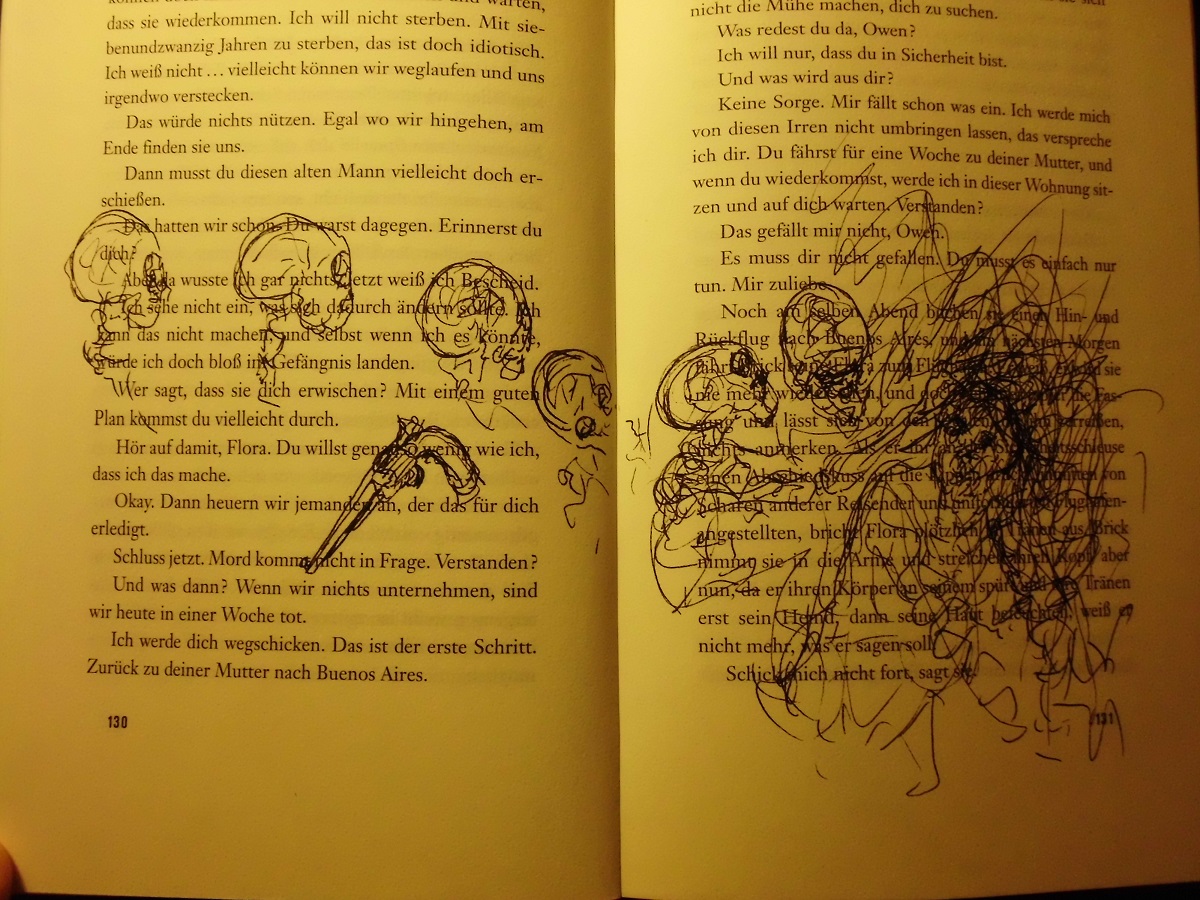 warten,
dass sie wiederkommen. Ich will nicht sterben. Mit sie-
benundzwanzig Jahren zu sterben, das ist doch idiotisch.
Ich weiß nicht … vielleicht können wir weglaufen und uns
irgendwo verstecken.
Das würde nichts nützen. Egal wo wir hingehen, am
Ende finden sie uns.
Dann musst du diesen alten Mann vielleicht doch er-
schießen.
Das hatten wir schon. Du warst dagegen. Erinnerst du
dich?
Aber da wusste ich gar nichts. Jetzt weiß ich Bescheid.
Ich sehe nicht ein, was sich dadurch ändern sollte. Ich
kann das nicht machen, und selbst wenn ich es könnte,
würde ich doch bloß im Gefängnis landen.
Wer sagt, dass sie dich erwischen? Mit einem guten
Plan kommst du vielleicht durch.
Hör auf damit, Flora. Du willst genauso wenig wie ich,
dass ich das mache.
Okay. Dann heuern wir jemanden an, der das für dich
erledigt.
Schluss jetzt. Mord kommt nicht in Frage. Verstanden?
Und was dann? Wenn wir nichts unternehmen, sind
wir heute in einer Woche tot.
Ich werde dich wegschicken. Das ist der erste Schritt.
Zurück zu deiner Mutter nach Buenos Aires.
130
nicht die Mühe machen, dich zu suchen.
Was redest du da, Owen?
Ich will nur, dass du in Sicherheit bist.
Und was wird aus dir?
Keine Sorge. Mir fällt schon was ein. Ich werde mich
von diesen Irren nicht umbringen lassen, das verspreche
ich dir. Du fährst für eine Woche zu deiner Mutter, und
wenn du wiederkommst, werde ich in dieser Wohnung sit-
zen und auf dich warten. Verstanden?
Das gefällt mir nicht, Owen.
Es muss dir nicht gefallen. Du musst es einfach nur
tun. Mir zuliebe.
Noch am selben Abend buchen sie einen Hin- und
Rückflug nach Buenos Aires, und am nächsten Morgen
fährt Brick Flora zum sie
nie mehr wiedersehen, und doch
und lässt sich von den
nichts anmerken. Als er
einen Abschiedskuss auf die von
Scharen anderer Reisender und
angestellten, bricht Flora plötzlich in Tränen aus. Brick
nimmt sie in die Arme und streichelt ihren Kopf, aber
nun, da er ihren Körper an seinem spürt und ihre Tränen
erst sein Hemd, dann seine Haut befeuchten, weiß er
nicht mehr, was er sagen soll.
Schick mich nicht fort, sagt sie.
131